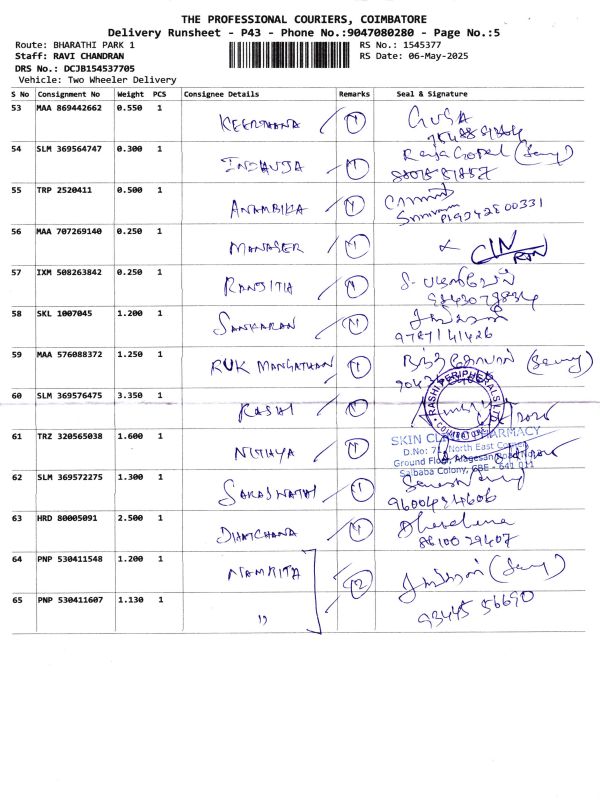 THE PROFESSIONAL COURIERS, COIMBATORE
Delivery Runsheet - P43 - Phone No.:9047080280 - Page No.:5
Route: BHARATHI PARK 1 RS No.: 1545377
Staff: RAVI CHANDRAN RS Date: 06-May-2025
DRS No.: DCJB154537705
Vehicle: Two Wheeler Delivery
S No Consignment No Weight PCS Consignee Details Remarks Seal & Signature
53 MAA 869442662 0.550 1 KEERTHANA 1
54 SLM 369564747 0.300 1 INDHUJA 1
55 TRP 2520411 0.500 1 ANAMBIKA 1
56 MAA 707269140 0.250 1 MANAGER 1
57 IXM 508263842 0.250 1 RANJITIA 1
58 SKL 1007045 1.200 1 SANKARAN 1
9787141426
59 MAA 576088372 1.250 1 RUK MANGATHAN 1
60 SLM 369576475 3.350 1 RASHI 1 RASHI PERIPHERALS LTD. COIMBATORE
61 TRZ 320565038 1.600 1 NITHYA 1 SKIN PHARMACY
North East Corner
Ground Floor, Alagesan Road
Saibaba Colony, CBE - 641 011
62 SLM 369572275 1.300 1 SARASWATHI 1
63 HRD 80005091 2.500 1 DHATCHANA 1
8610029407
64 PNP 530411548 1.200 1 NAMRITA 2
65 PNP 530411607 1.130 1 "
93445 56690